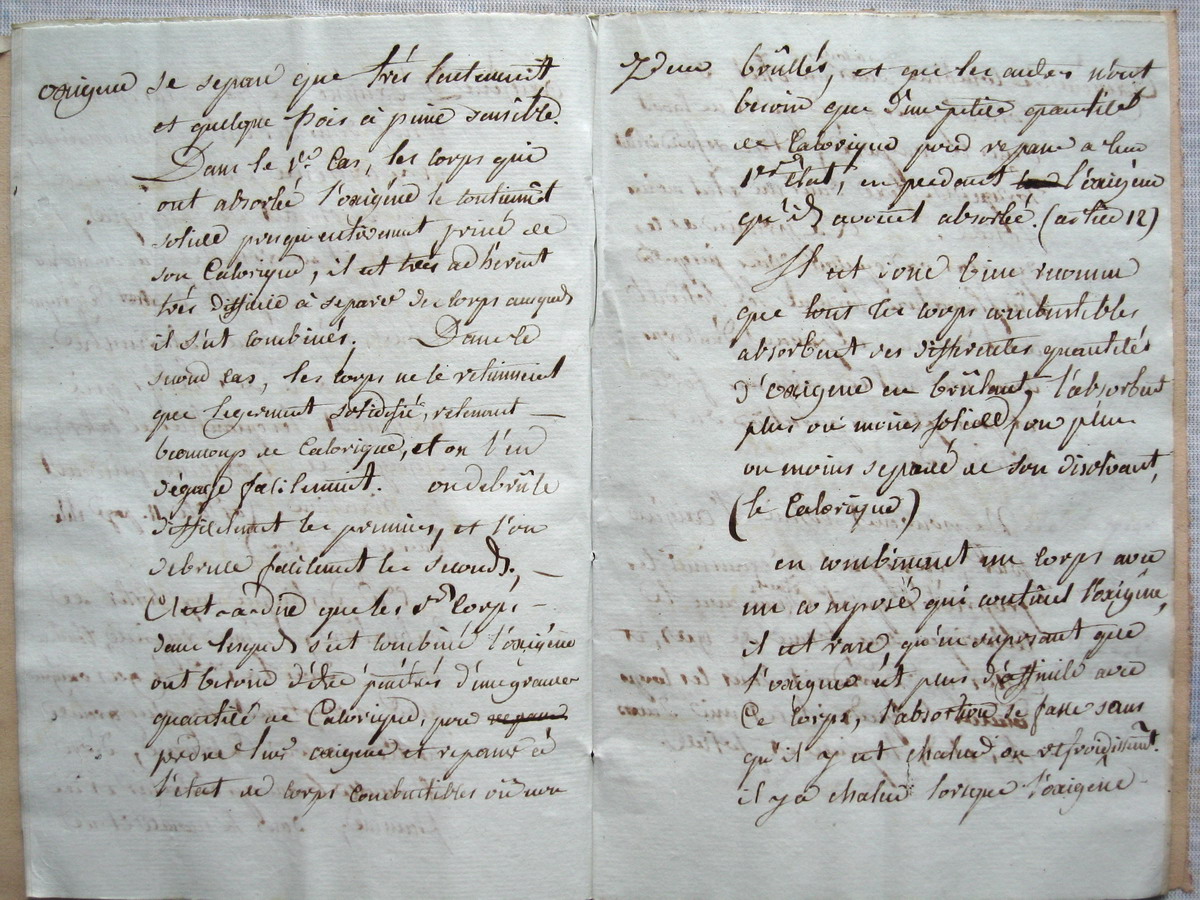 oxigene se separe que très lentement
et quelque fois à peine sensible.
Dans le 1er Cas, les corps qui
ont absorbé l'oxigéne le contiennent
solide presqu'entierement privé de
son Calorique, il est très adhérent
très difficile à separer des corps auxquels
il s'est combinés. Dans le
second cas, les corps ne le retiennent
que legerment solidifié, retenant
beaucoup de Calorique, et on l'en
dégage facilement. on debrûle
difficilment les premiers, et l'on
debrule facilment les seconds,
C'est-a-dire que les 1ers corps
dans lesquels s'est combiné l'oxigéne
ont besoin d'être pénétrés d'une grande
quantité de Calorique, pour
perdre leur oxigene et repasser à
l'état de corps combustibles ou non
brûllés, et que les autres n'ont
besoin que d'une petite quantité
de Calorique pour repasser a leur
1er état, en perdant l'oxigéne
qu'ils avoient absorbé. (article 12)
Il est donc bien reconnu
que tout les corps combustibles
absorbent des differentes quantités
d'oxigene en brûlant, l'absorbent
plus ou moins solide, ou plus
ou moins separé de son disolvant,
(le Calorique)
en combinant un corps avec
un composé qui contient l'oxigéne,
il est rare qu'en suposant que
l'oxigene ait plus d'affinité avec
Ce corps, l'absorbtion se fasse sans
qu'il y ait chaleur, ou refroidissent.
il y a chaleur lorsque l'oxigene